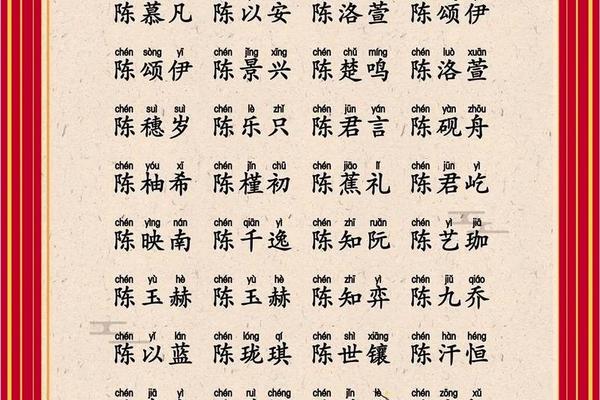 陈慕凡 陈以安 陈洛萱 陈颂伊
chén sòng yī chén jǐng xīng chén chǔ míng chén luò xuān
陈颂伊 陈景兴 陈楚鸣 陈洛萱
chén suì suì chén lè zhǐ chén jūn yán chén yàn zhōu
陈穗岁 陈乐只 陈君言 陈砚舟
chén yóu xī chén jǐn chū chén jiāo lǐ chén jūn yì
陈柚希 陈槿初 陈蕉礼 陈君屹
chén yìng nán chén qiān yì chén zhī ruǎn chén yì jiā
陈映南 陈千逸 陈知阮 陈艺珈
chén yù hè chén yù hè chén zhī yì chén jiǔ qiáo
陈玉赫 陈玉赫 陈知弈 陈九乔
chén yǐ lán chén lóng qí chén shì xiāng chén hàn héng
陈以蓝 陈珑琪 陈世镶 陈汗恒
chén jiā yì chén ruì chéng chén jǐn chén zǒng xǔ